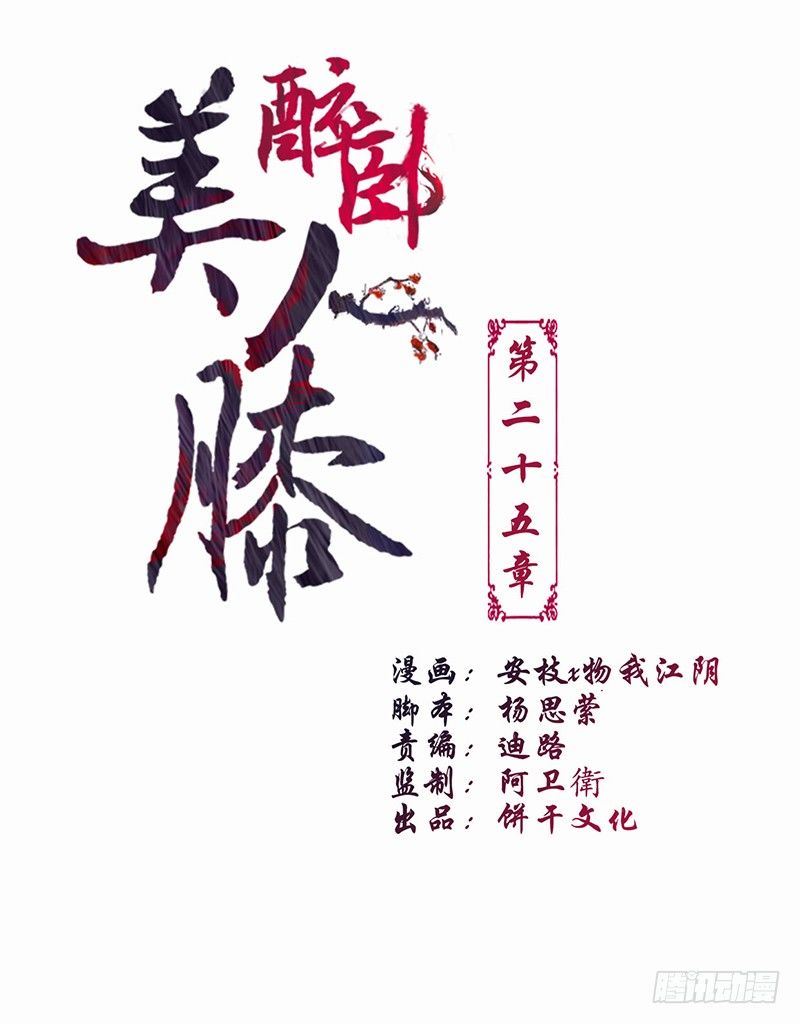 醉卧
美人膝
第二十五章
漫画：安枝x物我江阴
脚本：杨思萦
责编：迪路
监制：阿卫衛
出品：饼干文化
腾讯动漫